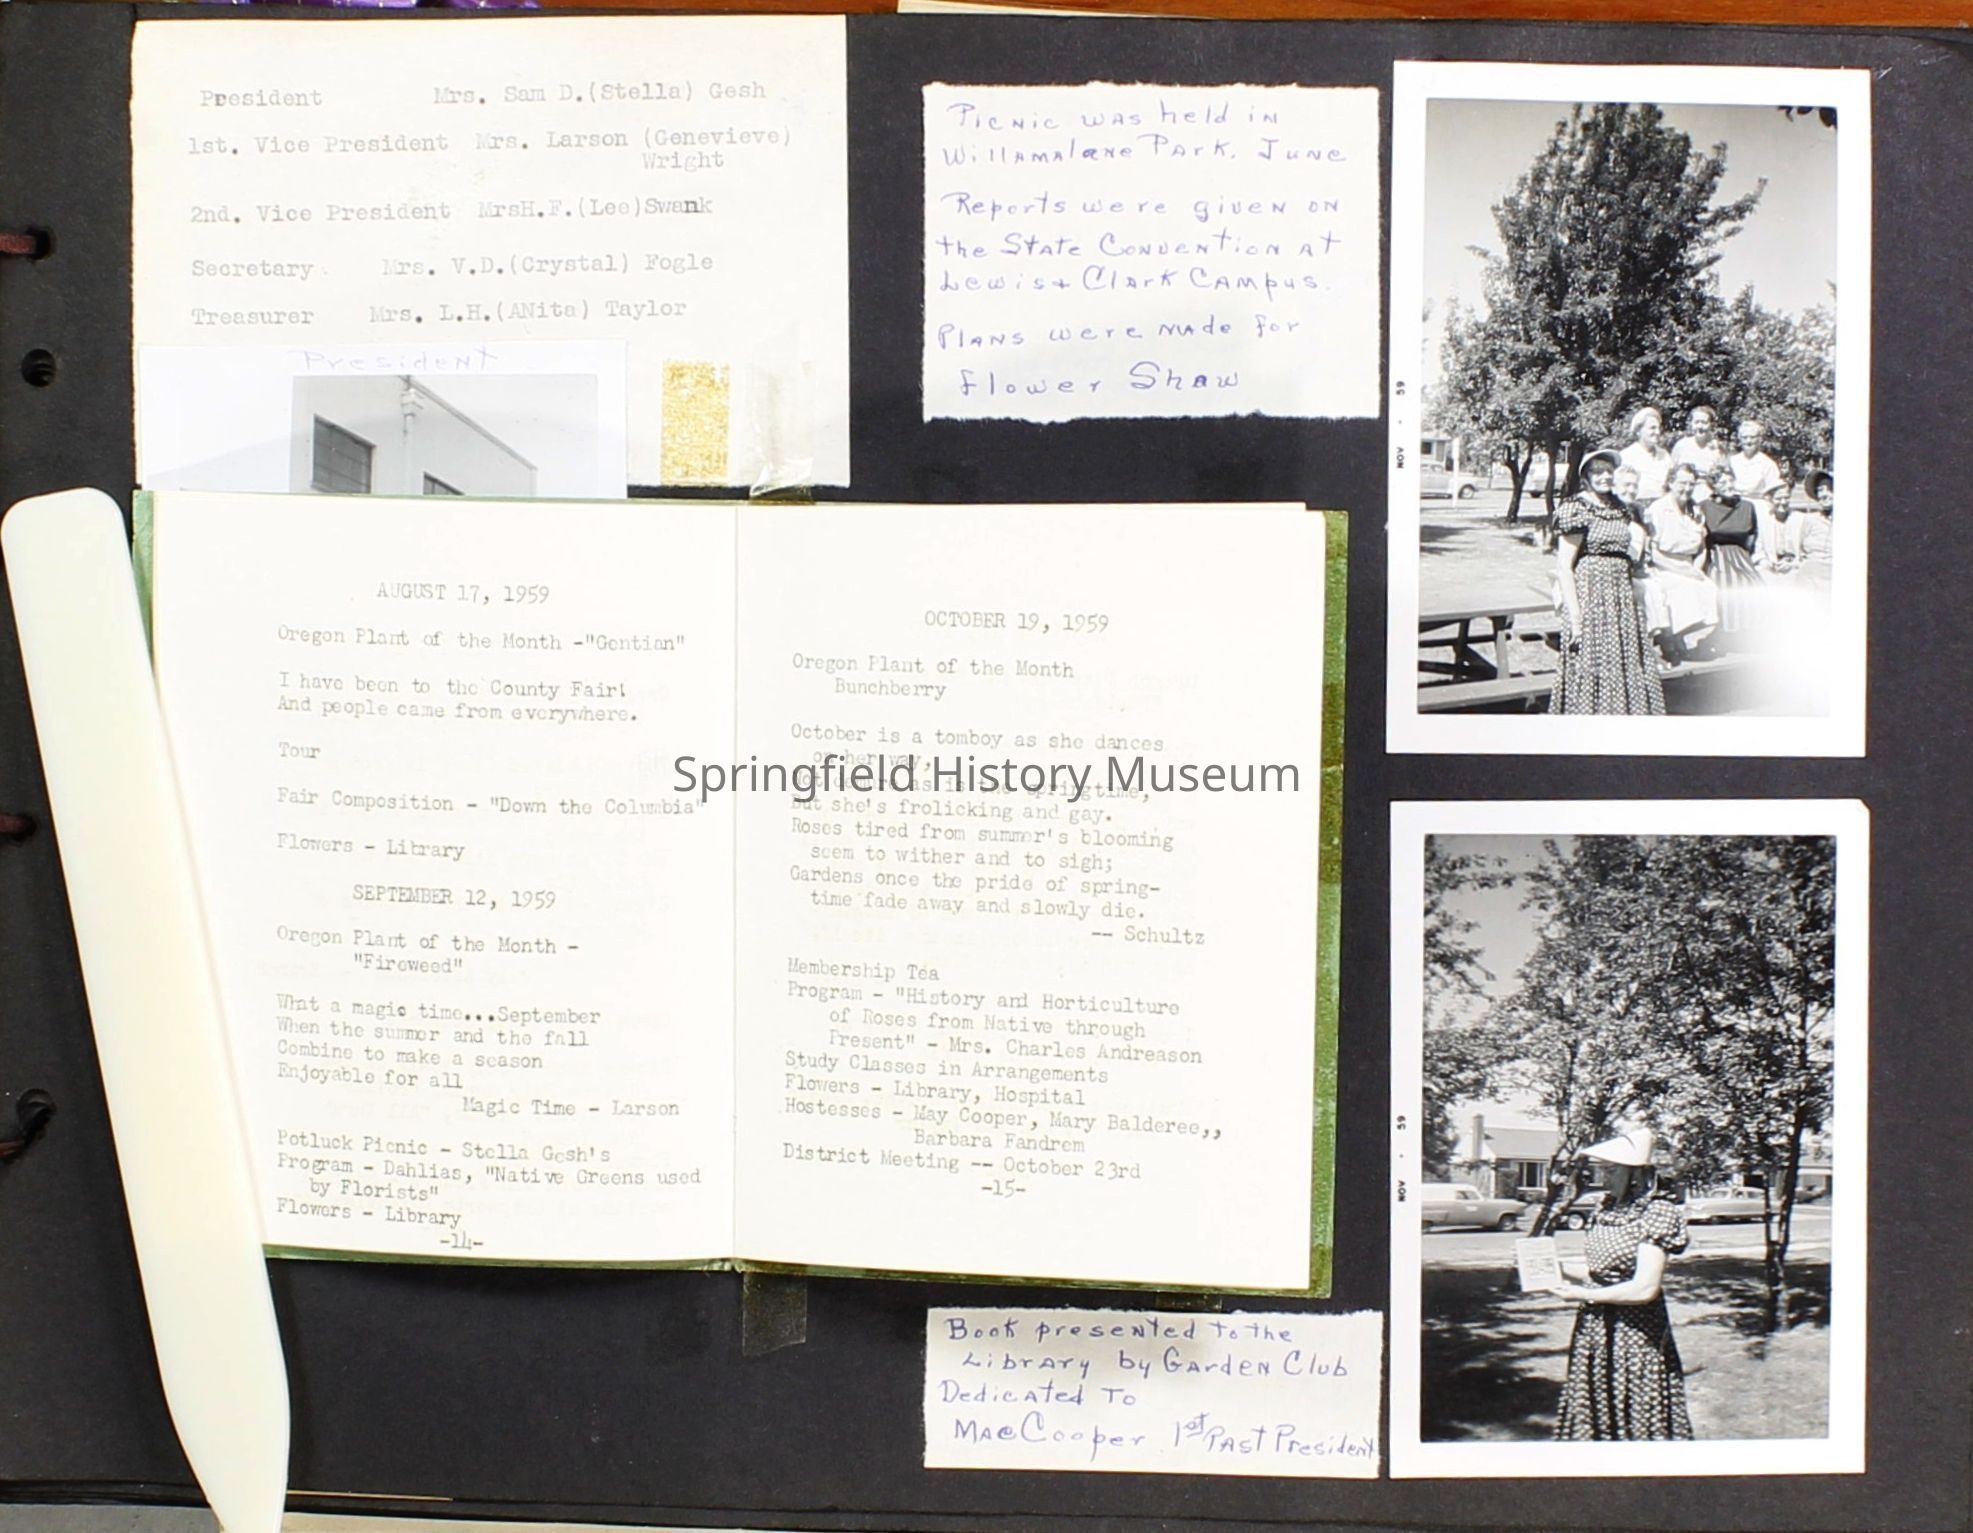 President Mrs. Sam D.(Stella) Gesh
1st. Vice President Mrs. Larson (Genevieve)
Wright
2nd. Vice President MrsH.F.(Lee)Swank
Secretary. Mrs. V.D.(Crystal) Fogle
Treasurer Mrs. L.H.(ANita) Taylor
President
Picnic was held in
Willamalane Park. June
Reports were given on
the State Convention at
Lewis + Clark Campus.
Plans were made for
Flower Show
NOV · 59
AUGUST 17, 1959
Oregon Plant of the Month -"Gentian"
I have been to the County Fair!
And people came from everywhere.
Tour
Fair Composition - "Down the Columbia"
Flowers - Library
SEPTEMBER 12, 1959
Oregon Plant of the Month -
"Fireweed"
What a magic time...September
When the summer and the fall
Combine to make a season
Enjoyable for all
Magic Time - Larson
Potluck Picnic - Stella Gesh's
Program - Dahlias, "Native Greens used
by Florists"
Flowers - Library
-14-
OCTOBER 19, 1959
Oregon Plant of the Month
Bunchberry
October is a tomboy as she dances
on her way,
Not demure as is the springtime,
But she's frolicking and gay.
Roses tired from summer's blooming
seem to wither and to sigh;
Gardens once the pride of spring-
time fade away and slowly die.
-- Schultz
Membership Tea
Program - "History and Horticulture
of Roses from Native through
Present" - Mrs. Charles Andreason
Study Classes in Arrangements
Flowers - Library, Hospital
Hostesses - May Cooper, Mary Balderee,,
Barbara Fandrem
District Meeting -- October 23rd
-15-
Springfield History Museum
NOV · 59
Book presented to the
Library by Garden Club
Dedicated To
Mae Cooper 1st Past President